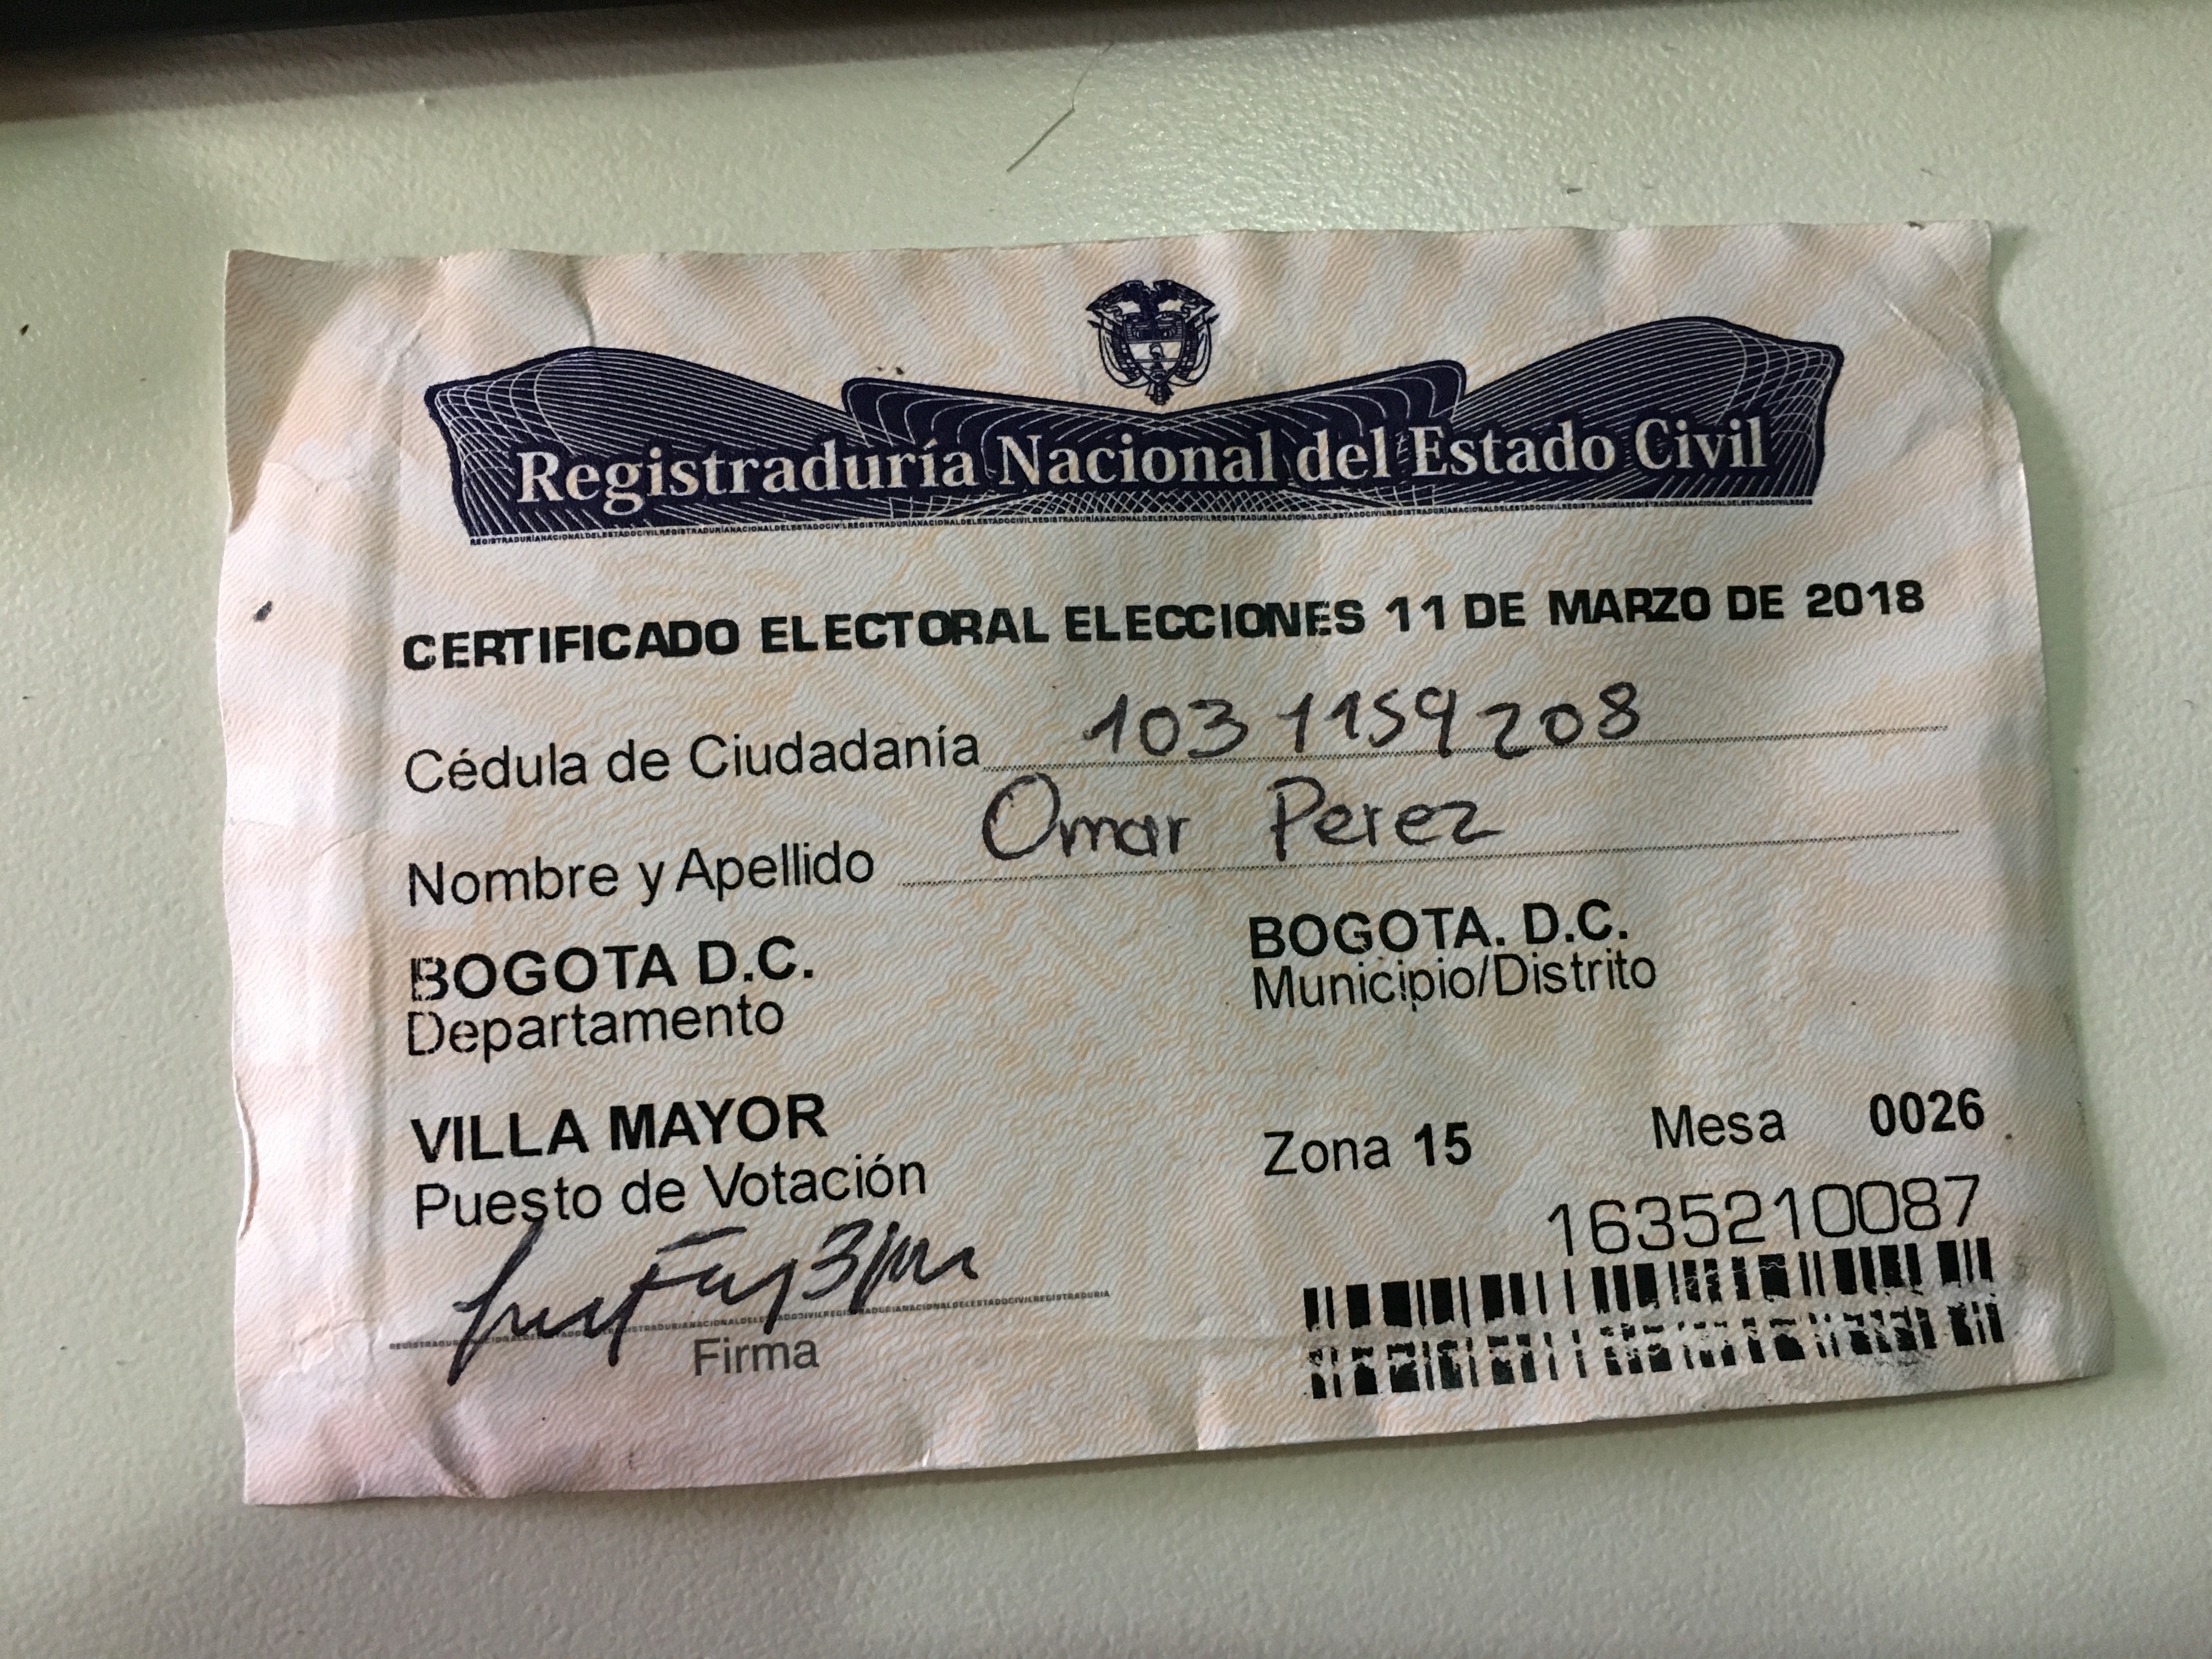 Registraduría Nacional del Estado Civil
CERTIFICADO ELECTORAL ELECCIONES 11 DE MARZO DE 2018
Cédula de Ciudadanía 1031159208
Nombre y Apellido Omar Perez
BOGOTA D.C. BOGOTA. D.C.
Departamento Municipio/Distrito
VILLA MAYOR Zona 15 Mesa 0026
Puesto de Votación
1635210087
Firma